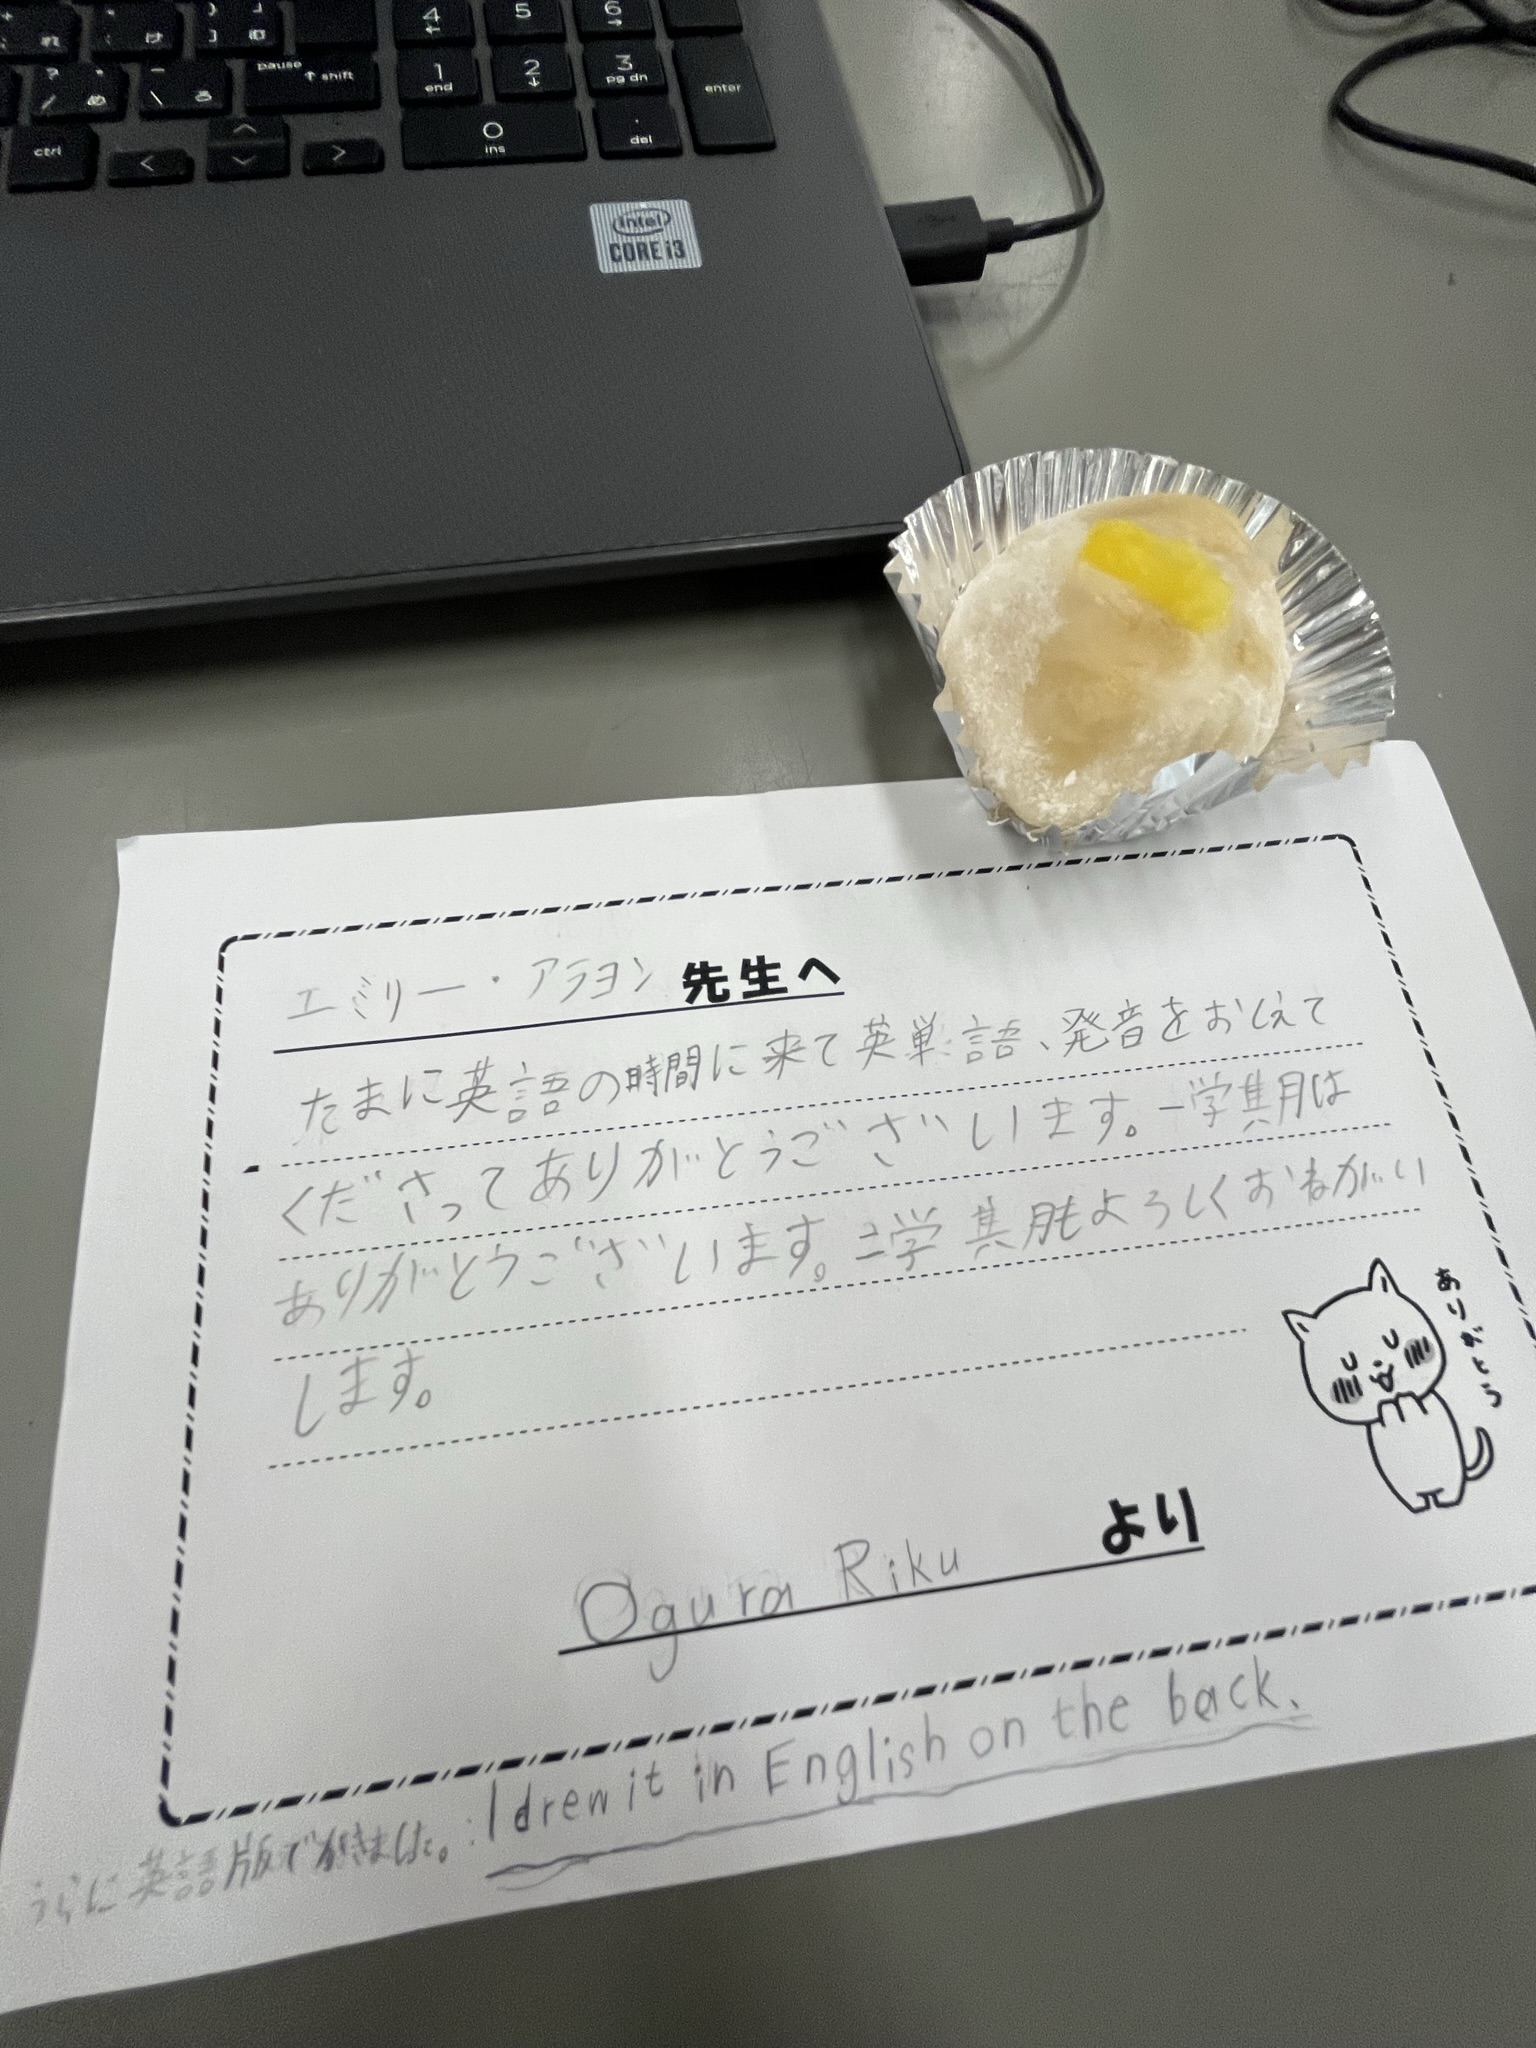 4
5
6
pause
↑ shift
1
end
2
3
pg dn
enter
ctrl
0
ins
.
del
intel
CORE i3
エミリー・アラヨン 先生へ
たまに英語の時間に来て英単語、発音をおしえて
くださってありがとうございます。一学期は
ありがとうございます。二学期もよろしくおねがい
します。
ありがとう
Ogura Riku より
うらに英語版でかきました。: I drew it in English on the back.